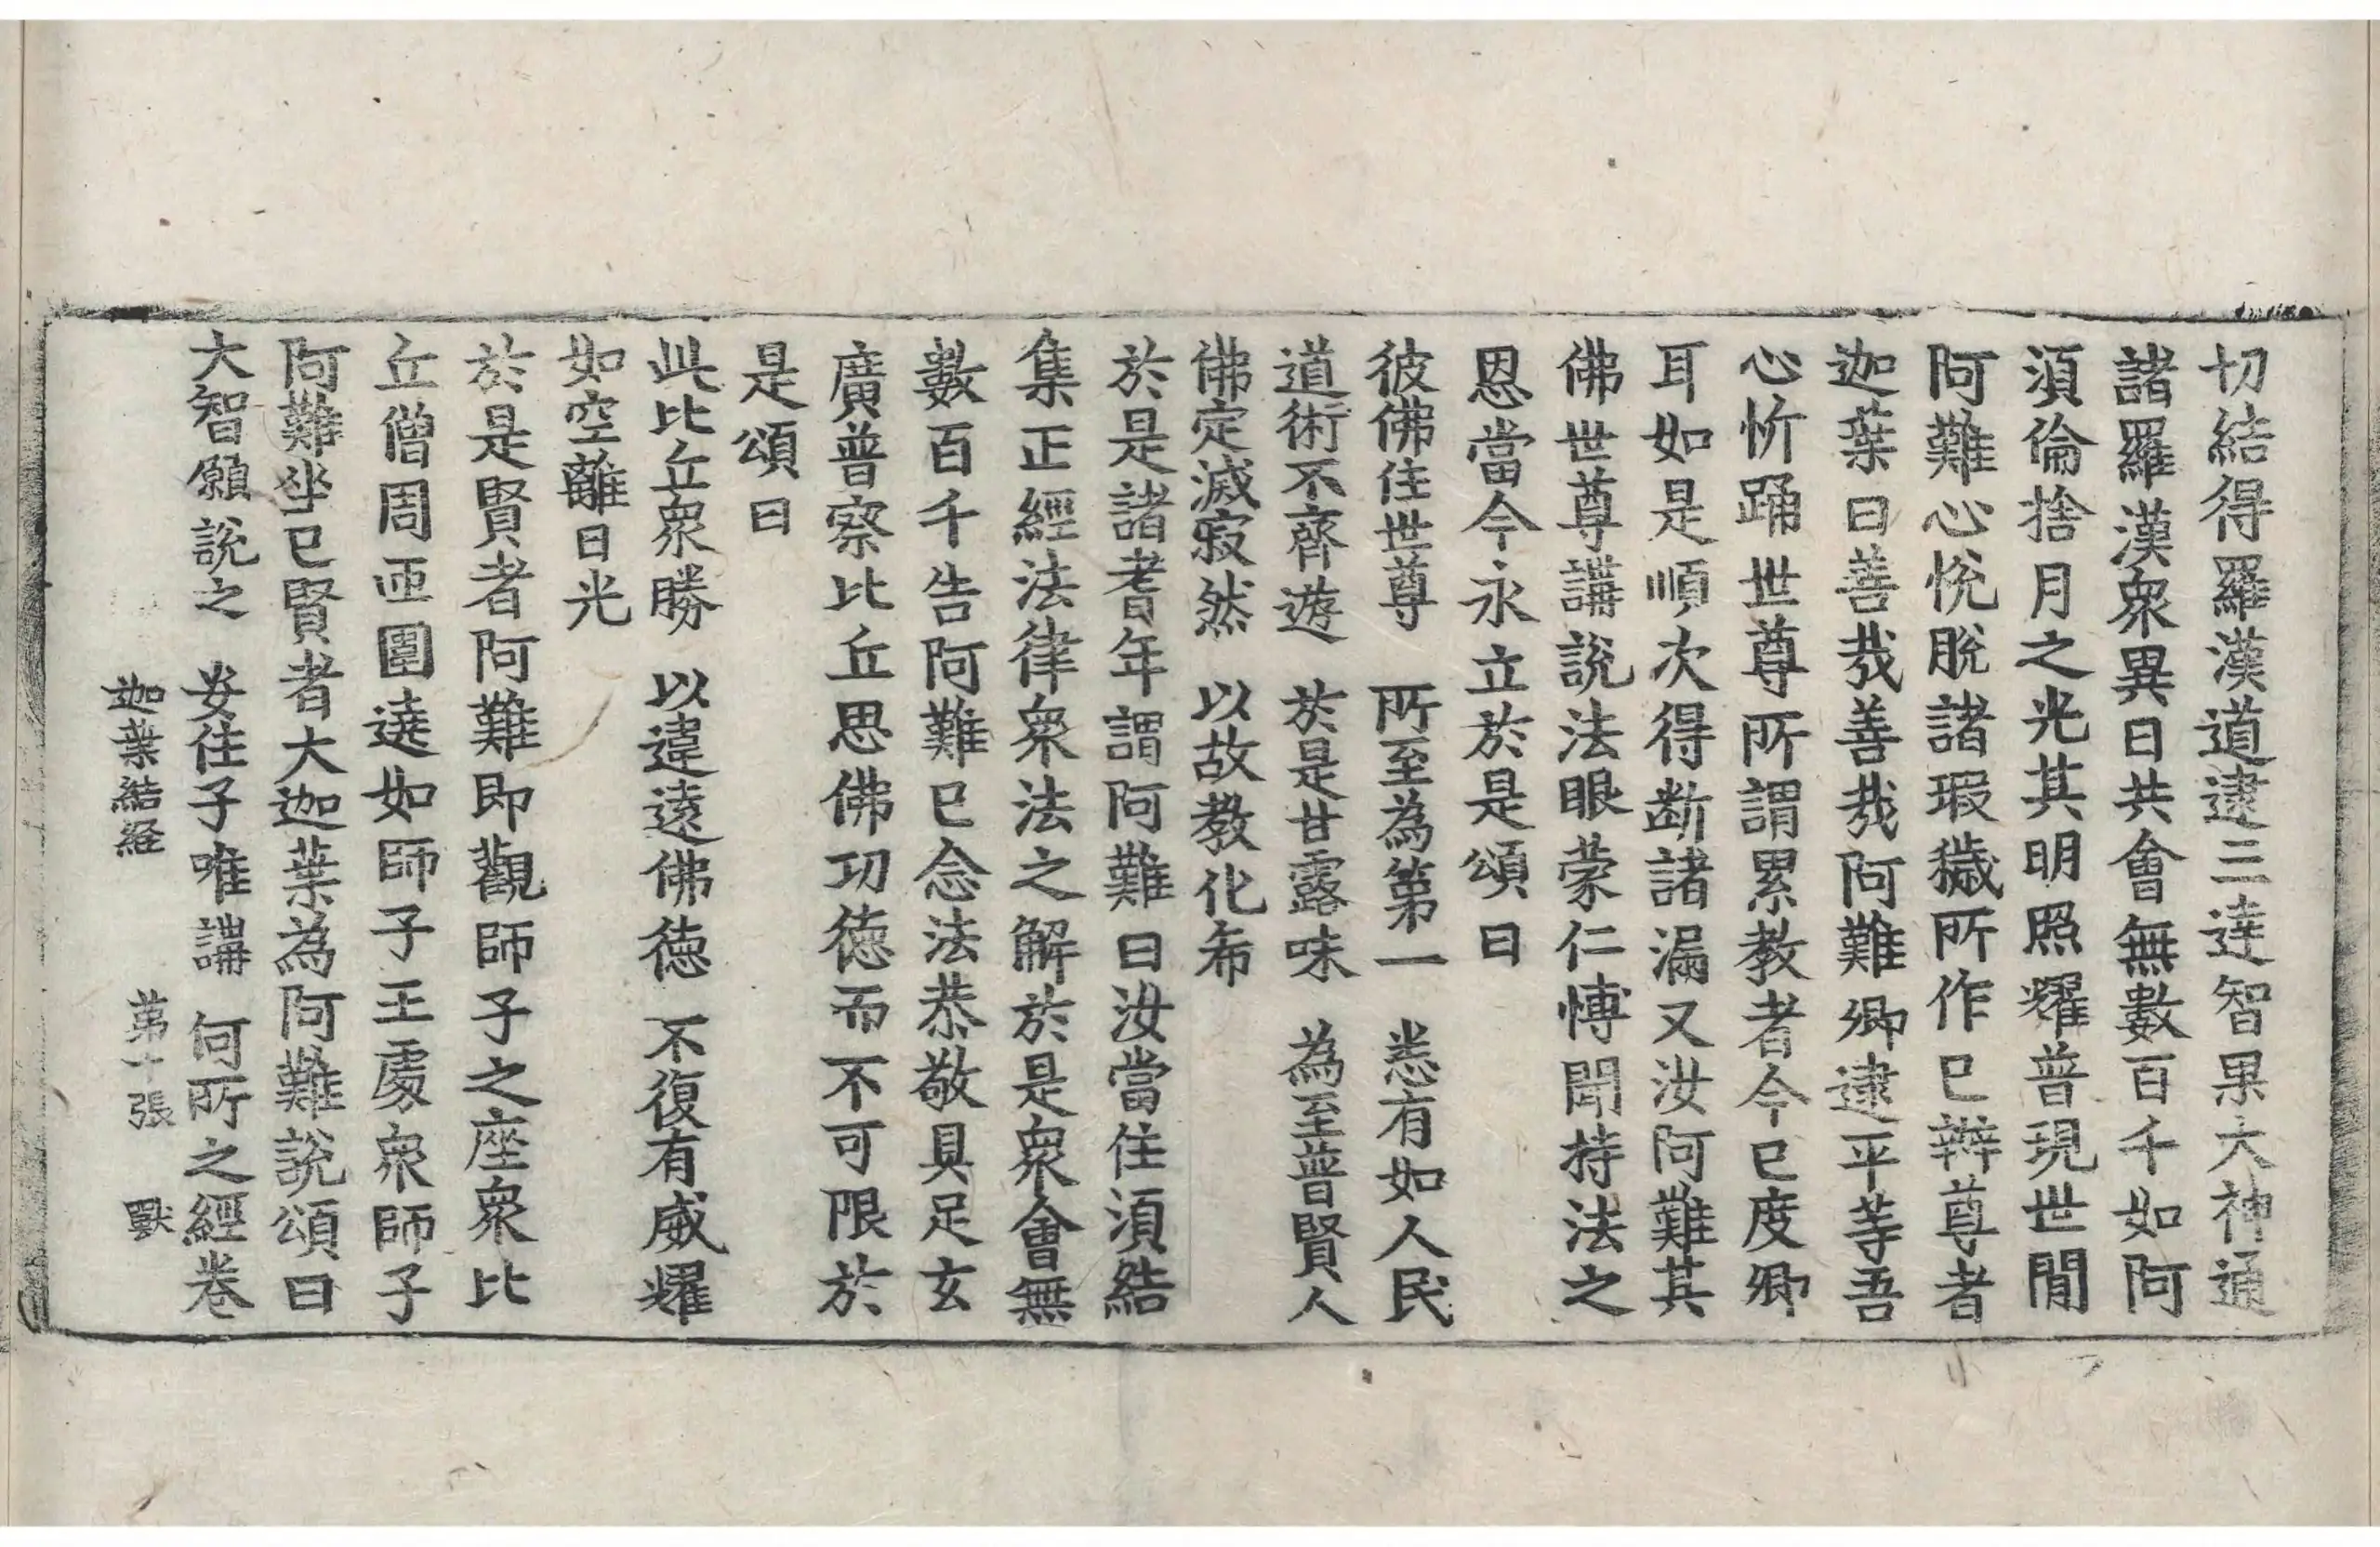 切結得羅漢道逮三達智果大神通
諸羅漢衆異日共會無數百千如阿
須倫捨月之光其明照耀普現世閒
阿難心悅脫諸瑕穢所作已辦尊者
迦葉曰善哉善哉阿難卿逮平等吾
心忻踊世尊所謂累教者今已度卿
耳如是順次得斷諸漏又汝阿難其
佛世尊講說法眼蒙仁慱聞持法之
恩當令永立於是頌曰
彼佛住世尊　所至為第一　悉有如人民
道術不齊遊　於是甘露味　為至普賢人
佛定滅寂然　以故教化布
於是諸耆年謂阿難曰汝當住須結
集正經法律衆法之解於是衆會無
數百千告阿難已念法恭敬具足玄
廣普察比丘思佛功德而不可限於
是頌曰
此比丘衆勝　以違遠佛德　不復有威耀
如空離日光
於是賢者阿難即觀師子之座衆比
丘僧周匝圍遶如師子王處衆師子
阿難坐已賢者大迦葉為阿難說頌曰
大智願說之　安住子唯講　何所之經卷
迦葉結経　第十張　獸